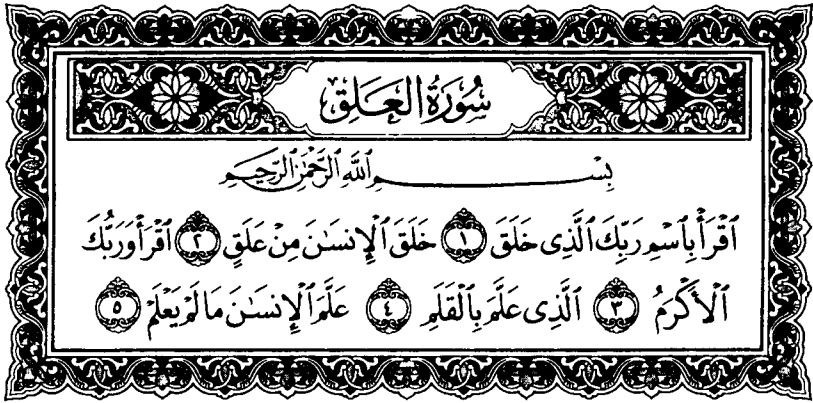 سُورَةُ العَلَقِ
بِسْمِ اللَّهِ الرَّحْمَٰنِ الرَّحِيمِ
ٱقْرَأْ بِٱسْمِ رَبِّكَ ٱلَّذِى خَلَقَ ١ خَلَقَ ٱلْإِنسَٰنَ مِنْ عَلَقٍ ٢ ٱقْرَأْ وَرَبُّكَ
ٱلْأَكْرَمُ ٣ ٱلَّذِى عَلَّمَ بِٱلْقَلَمِ ٤ عَلَّمَ ٱلْإِنسَٰنَ مَا لَمْ يَعْلَمْ ٥